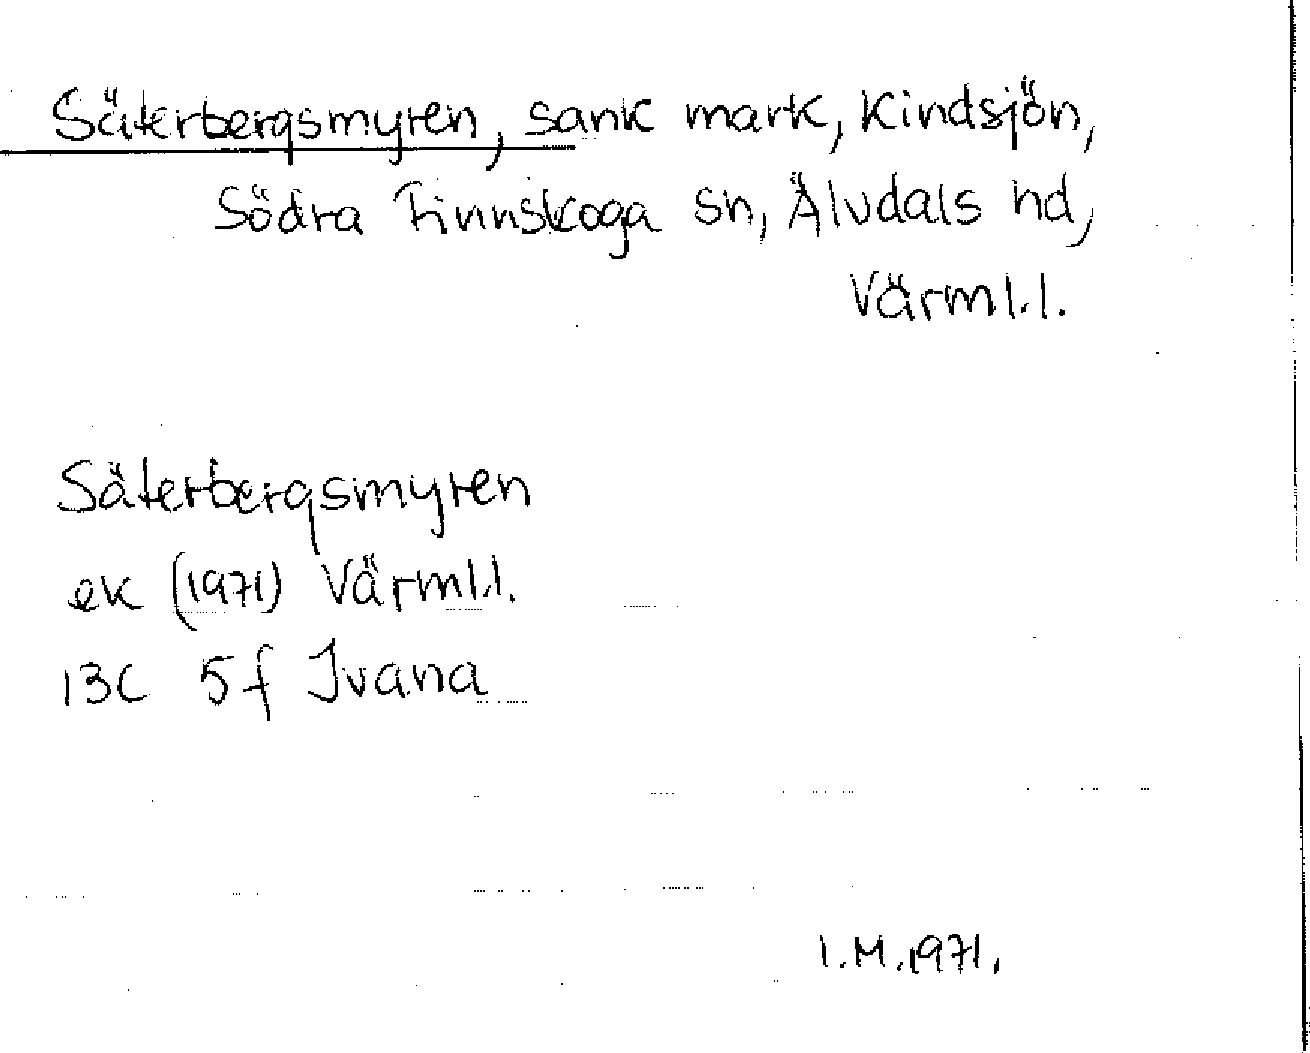 Säterbergsmyren, sank mark, Kindsjön,
Södra Finnskoga sn, Älvdals hd,
Värml.l.
Säterbergsmyren
ek (1971) Värml.l.
13C 5f Ivana
I.M.1971.